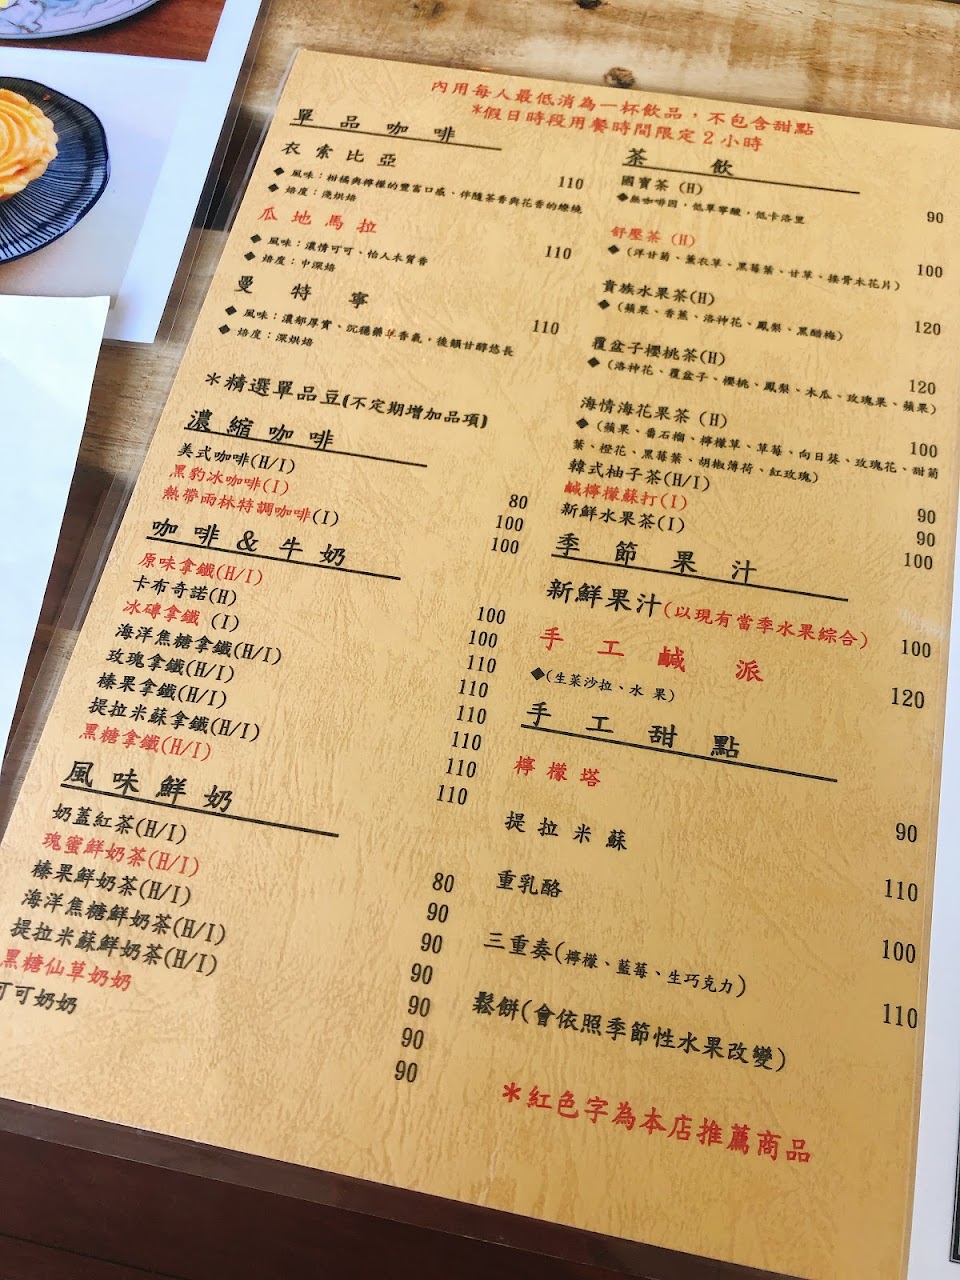 內用每人最低消為一杯飲品，不包含甜點
*假日時段用餐時間限定2小時
單品咖啡
衣索比亞 110
◆ 風味：柑橘與檸檬的豐富口感、伴隨茶香與花香的繚繞
◆ 焙度：淺烘焙
瓜地馬拉 110
◆ 風味：濃情可可、怡人木質香
◆ 焙度：中深焙
曼特寧 110
◆ 風味：濃郁厚實、沉穩藥草香氣，後韻甘醇悠長
◆ 焙度：深烘焙
*精選單品豆(不定期增加品項)
濃縮咖啡
美式咖啡(H/I) 80
黑豹冰咖啡(I) 100
熱帶雨林特調咖啡(I) 100
咖啡&牛奶
原味拿鐵(H/I) 100
卡布奇諾(H) 100
冰磚拿鐵 (I) 110
海洋焦糖拿鐵(H/I) 110
玫瑰拿鐵(H/I) 110
榛果拿鐵(H/I) 110
提拉米蘇拿鐵(H/I) 110
黑糖拿鐵(H/I) 110
風味鮮奶
奶蓋紅茶(H/I) 80
瑰蜜鮮奶茶(H/I) 90
榛果鮮奶茶(H/I) 90
海洋焦糖鮮奶茶(H/I) 90
提拉米蘇鮮奶茶(H/I) 90
黑糖仙草奶奶 90
可可奶奶 90
茶飲
國寶茶 (H) 90
◆無咖啡因，低單寧酸，低卡洛里
舒壓茶 (H) 100
◆ (洋甘菊、薰衣草、黑莓葉、甘草、接骨木花片)
貴族水果茶(H) 120
◆ (蘋果、香蕉、洛神花、鳳梨、黑醋梅)
覆盆子櫻桃茶(H) 120
◆ (洛神花、覆盆子、櫻桃、鳳梨、木瓜、玫瑰果、蘋果)
海情海花果茶 (H) 100
◆ (蘋果、番石榴、檸檬草、草莓、向日葵、玫瑰花、甜菊
葉、橙花、黑莓葉、胡椒薄荷、紅玫瑰)
韓式柚子茶(H/I) 90
鹹檸檬蘇打(I) 90
新鮮水果茶(I) 100
季節果汁
新鮮果汁(以現有當季水果綜合) 100
手工鹹派 120
◆(生菜沙拉、水 果)
手工甜點
檸檬塔 90
提拉米蘇 110
重乳酪 100
三重奏(檸檬、藍莓、生巧克力) 110
鬆餅(會依照季節性水果改變)
*紅色字為本店推薦商品